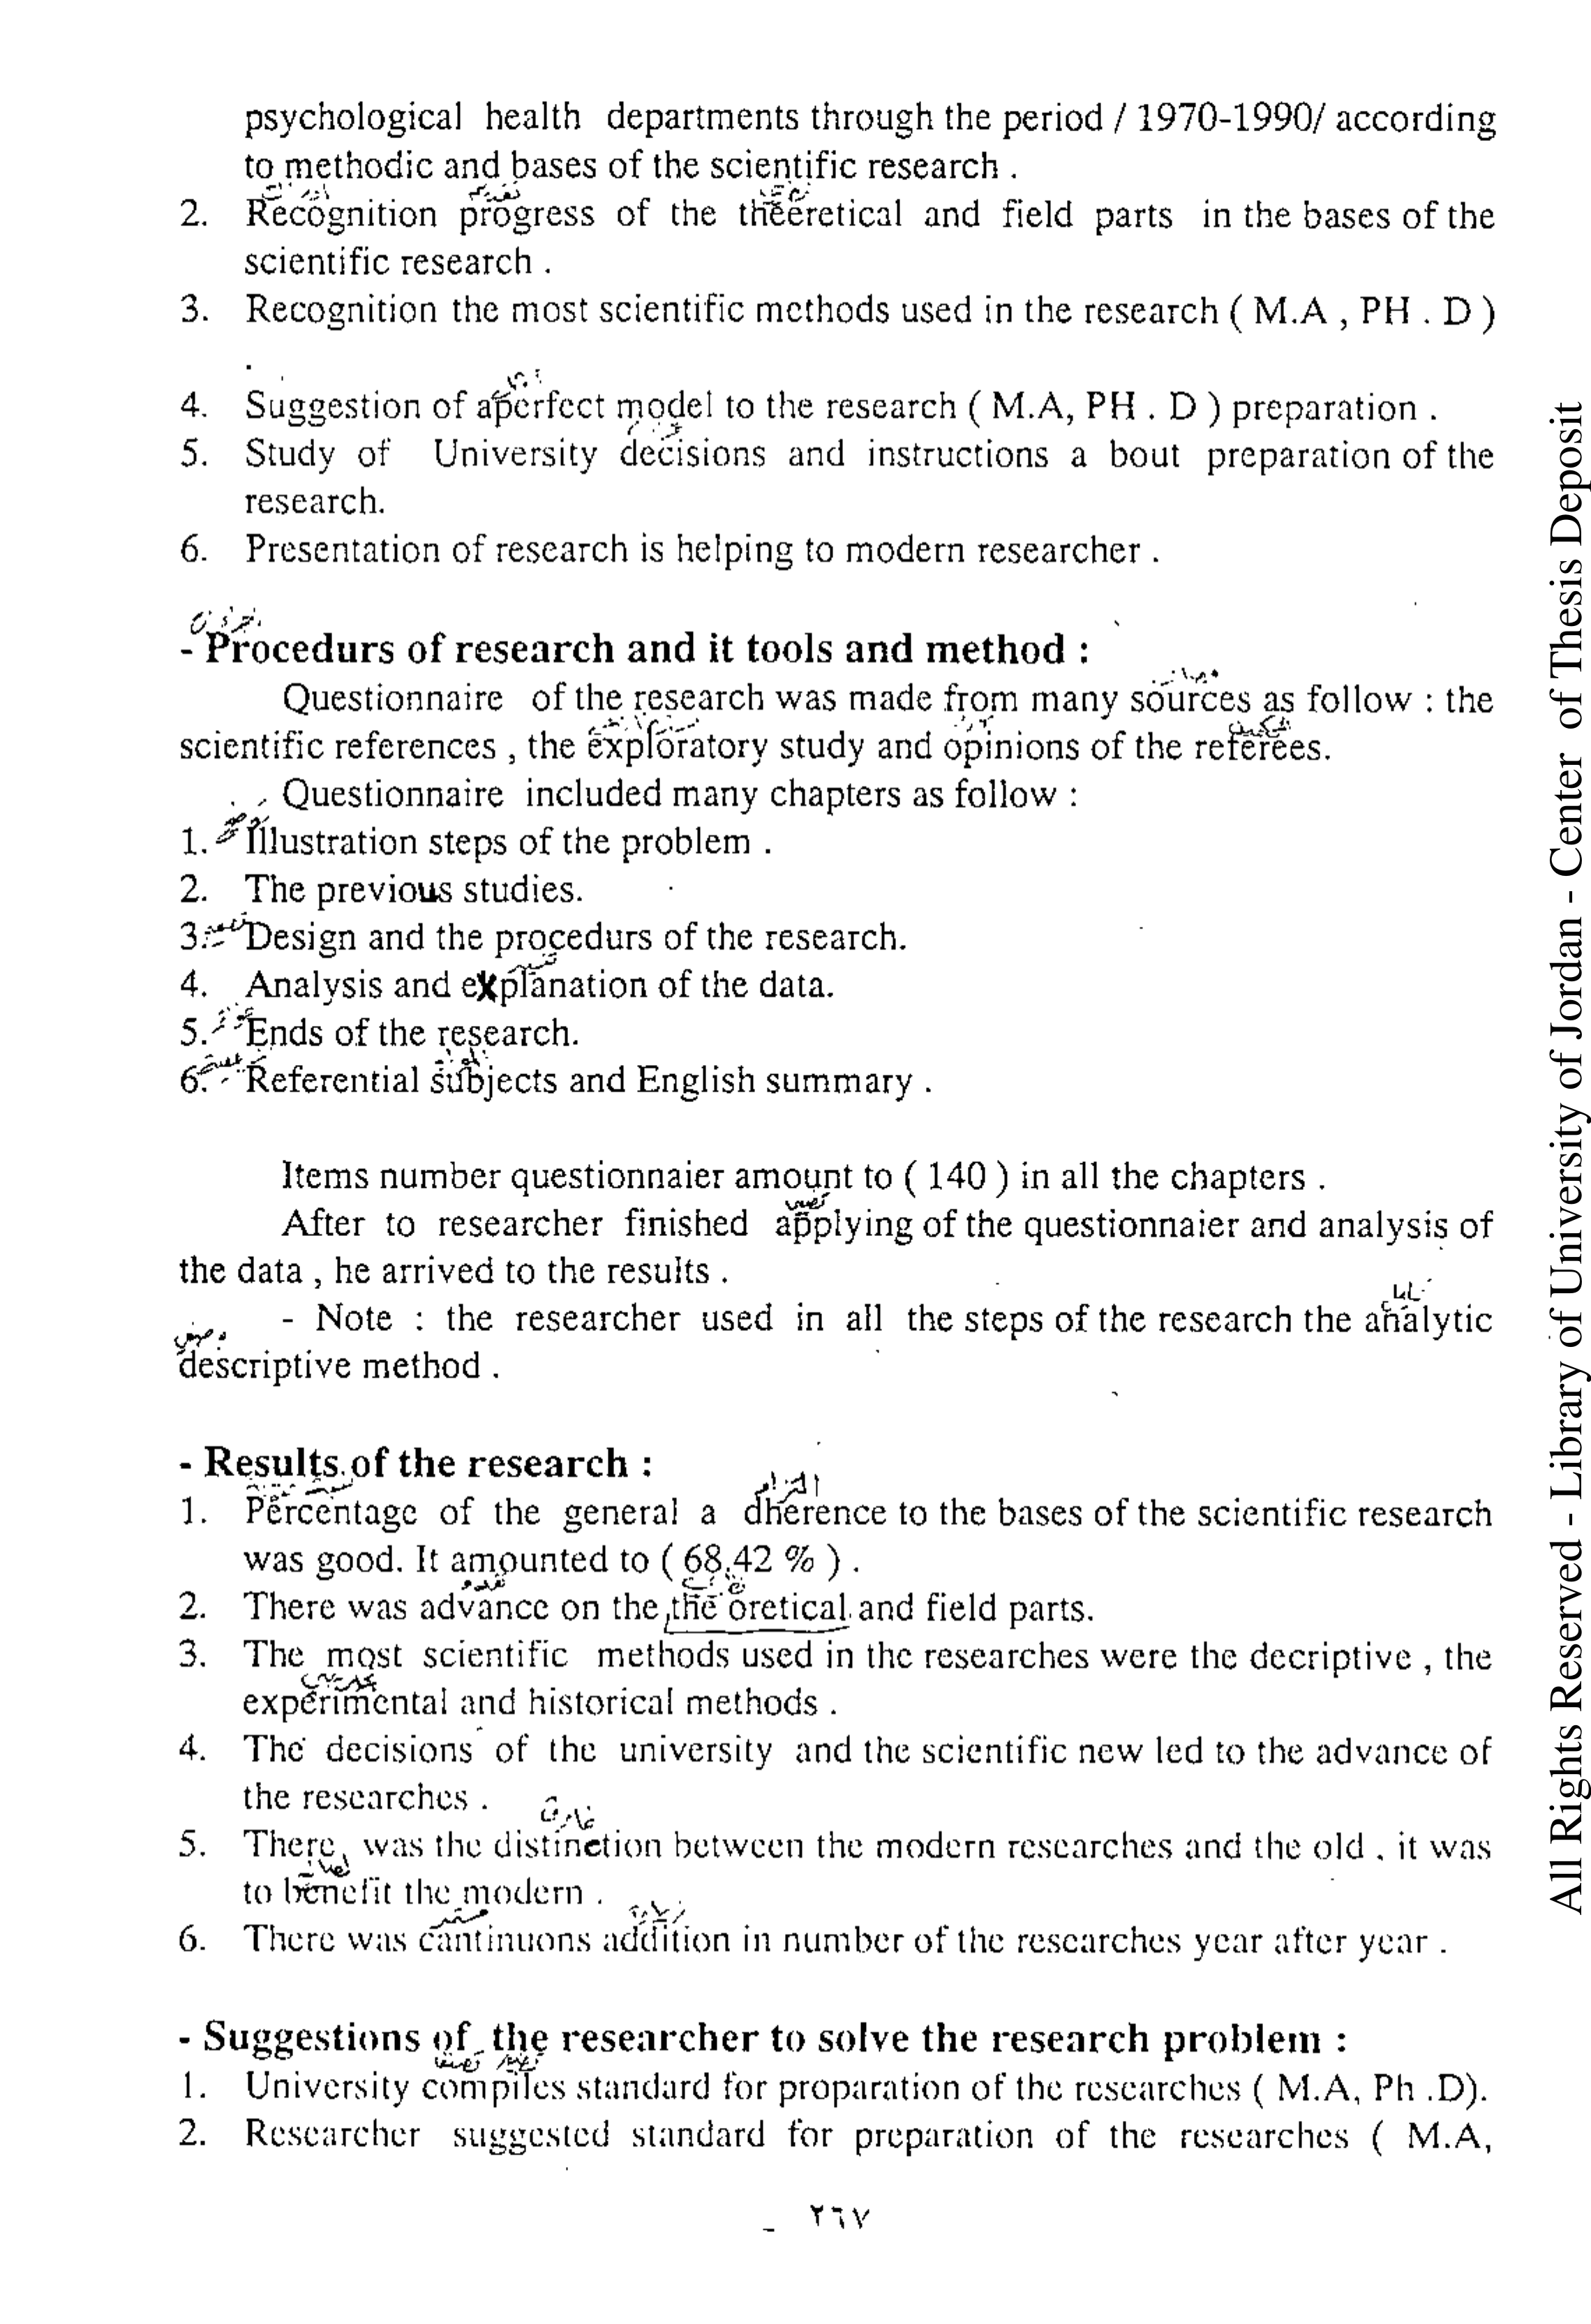 psychological health departments through the period / 1970-1990/ according
to methodic and bases of the scientific research .
2. Recognition progress of the theeretical and field parts in the bases of the
scientific research .
3. Recognition the most scientific methods used in the research ( M.A , PH . D )
.
4. Suggestion of aperfect model to the research ( M.A, PH . D ) preparation .
5. Study of University decisions and instructions a bout preparation of the
research.
6. Presentation of research is helping to modern researcher .
- Procedurs of research and it tools and method :
Questionnaire of the research was made from many sources as follow : the
scientific references , the exploratory study and opinions of the referees.
Questionnaire included many chapters as follow :
1. Illustration steps of the problem .
2. The previous studies.
3. Design and the procedurs of the research.
4. Analysis and explanation of the data.
5. Ends of the research.
6. Referential subjects and English summary .
Items number questionnaier amount to ( 140 ) in all the chapters .
After to researcher finished applying of the questionnaier and analysis of
the data , he arrived to the results .
- Note : the researcher used in all the steps of the research the analytic
descriptive method .
- Results of the research :
التزام
1. Percentage of the general a dherence to the bases of the scientific research
was good. It amounted to ( 68.42 % ) .
تقدم
2. There was advance on the the oretical and field parts.
3. The most scientific methods used in the researches were the decriptive , the
experimental and historical methods .
4. The decisions of the university and the scientific new led to the advance of
the researches .
5. There was the distinction between the modern researches and the old . it was
to benefit the modern .
6. There was cantinuons addition in number of the researches year after year .
- Suggestions of the researcher to solve the research problem :
1. University compiles standard for proparation of the researches ( M.A, Ph .D).
2. Researcher suggested standard for preparation of the researches ( M.A,
_ ٢٦٧
All Rights Reserved - Library of University of Jordan - Center of Thesis Deposit